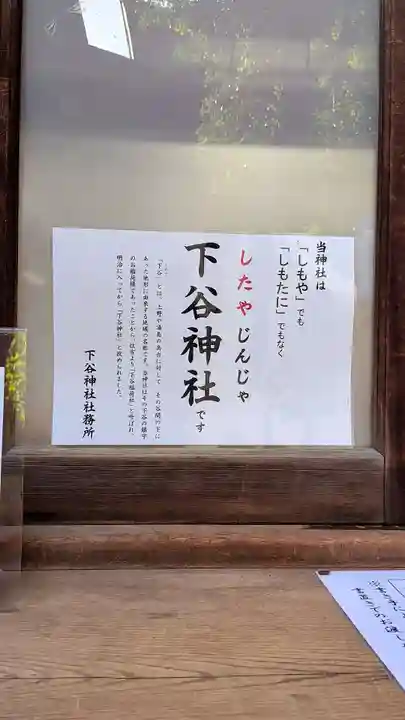 当神社は
「しもや」でも
「しもたに」でもなく
したやじんじゃ
下谷神社です
「下谷」とは、上野や湯島の高台に対して、その谷間の下に
あった地形に由来する地域の名称です。当神社はその下谷の鎮守
の谷稲荷様であったことから、往古より「下谷稲荷社」と呼ばれ、
明治に入ってから「下谷神社」と改められました。
下谷神社社務所